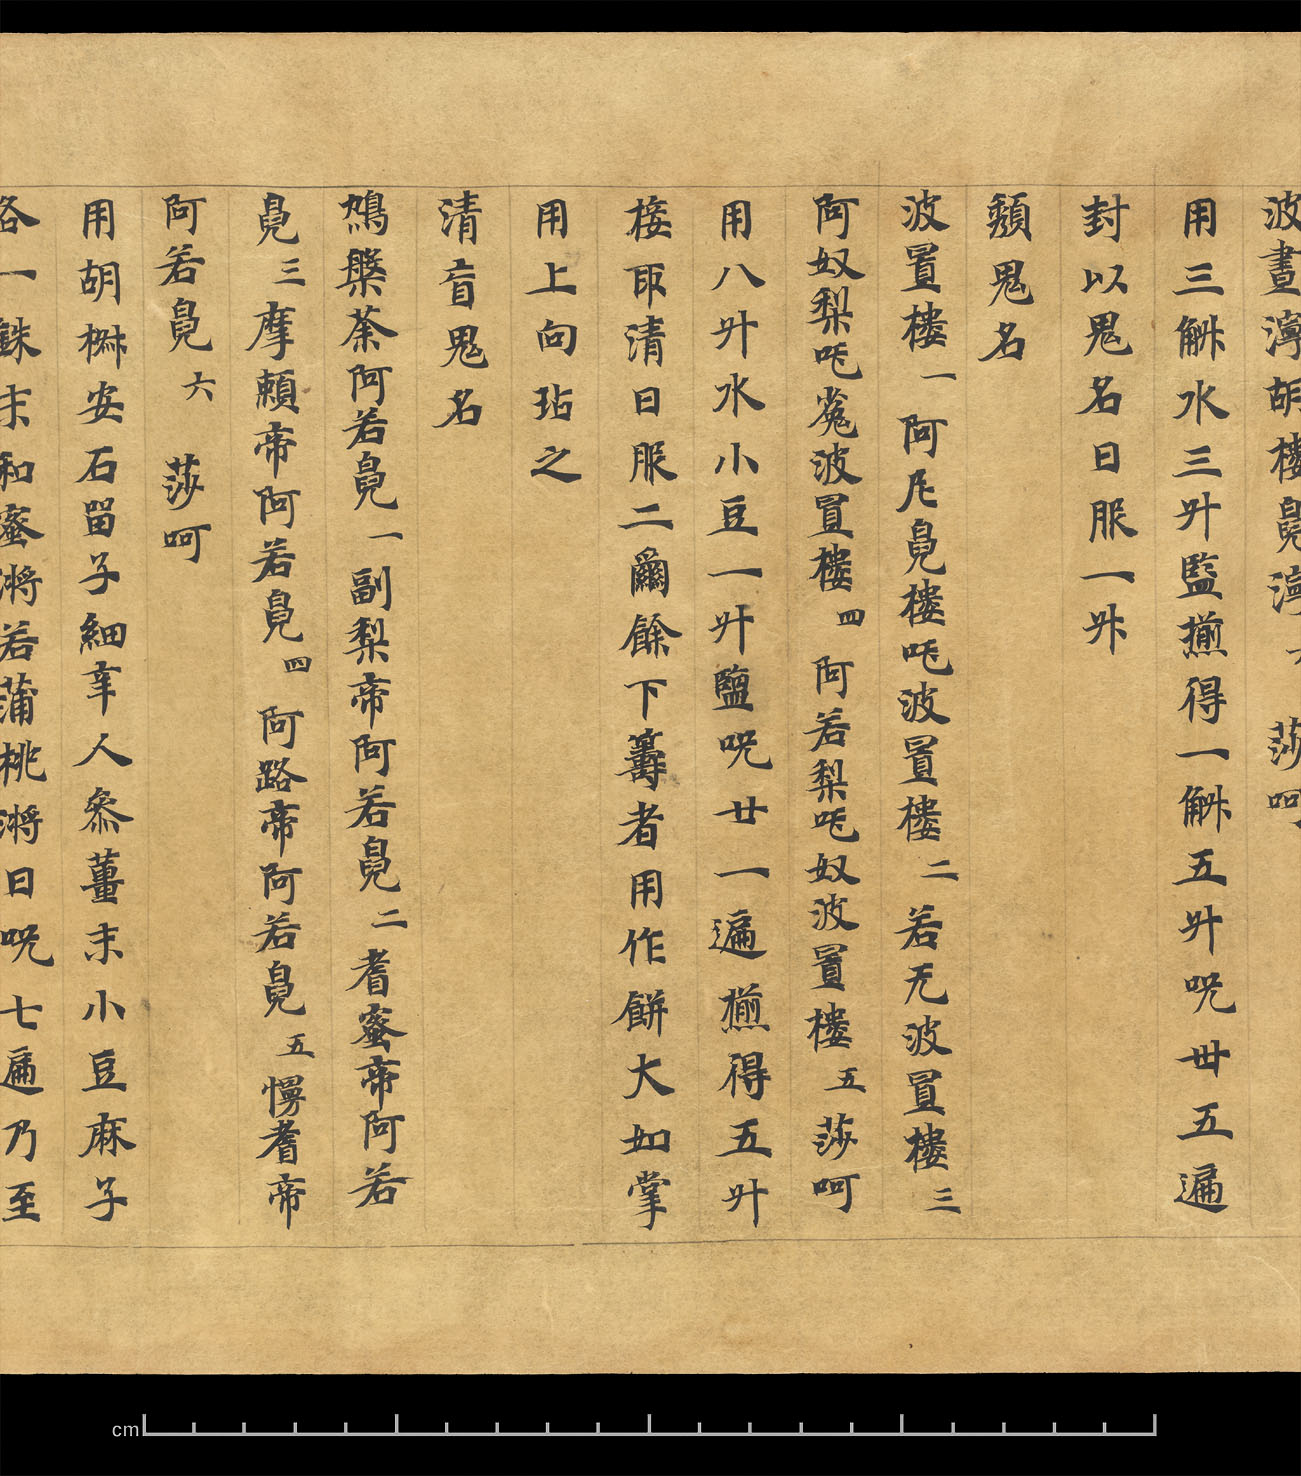 用三斛水三升監㨎得一斛五升呪丗五遍
封以鬼名日服一升
鬼名
波置樓一 阿尼㲋樓吒波置樓二 若无波置樓三
阿奴梨吒㝹波置樓四 阿若梨吒奴波置樓五 莎呵
用八升水小豆一升鹽呪廿一遍㨎得五升
接取清日服二 餘下 者用作餅大如掌
用上向玷之
清盲鬼名
鳩槃荼阿若㲋一 副梨帝阿若㲋二 耆蜜帝阿若
㲋三 摩頼帝阿若㲋四 阿路帝阿若㲋五 愣耆帝
阿若㲋六 莎呵
用胡椒安石留子細辛人參薑末小豆麻子
各一銖末和蜜漿若蒲桃漿日呪七遍乃至